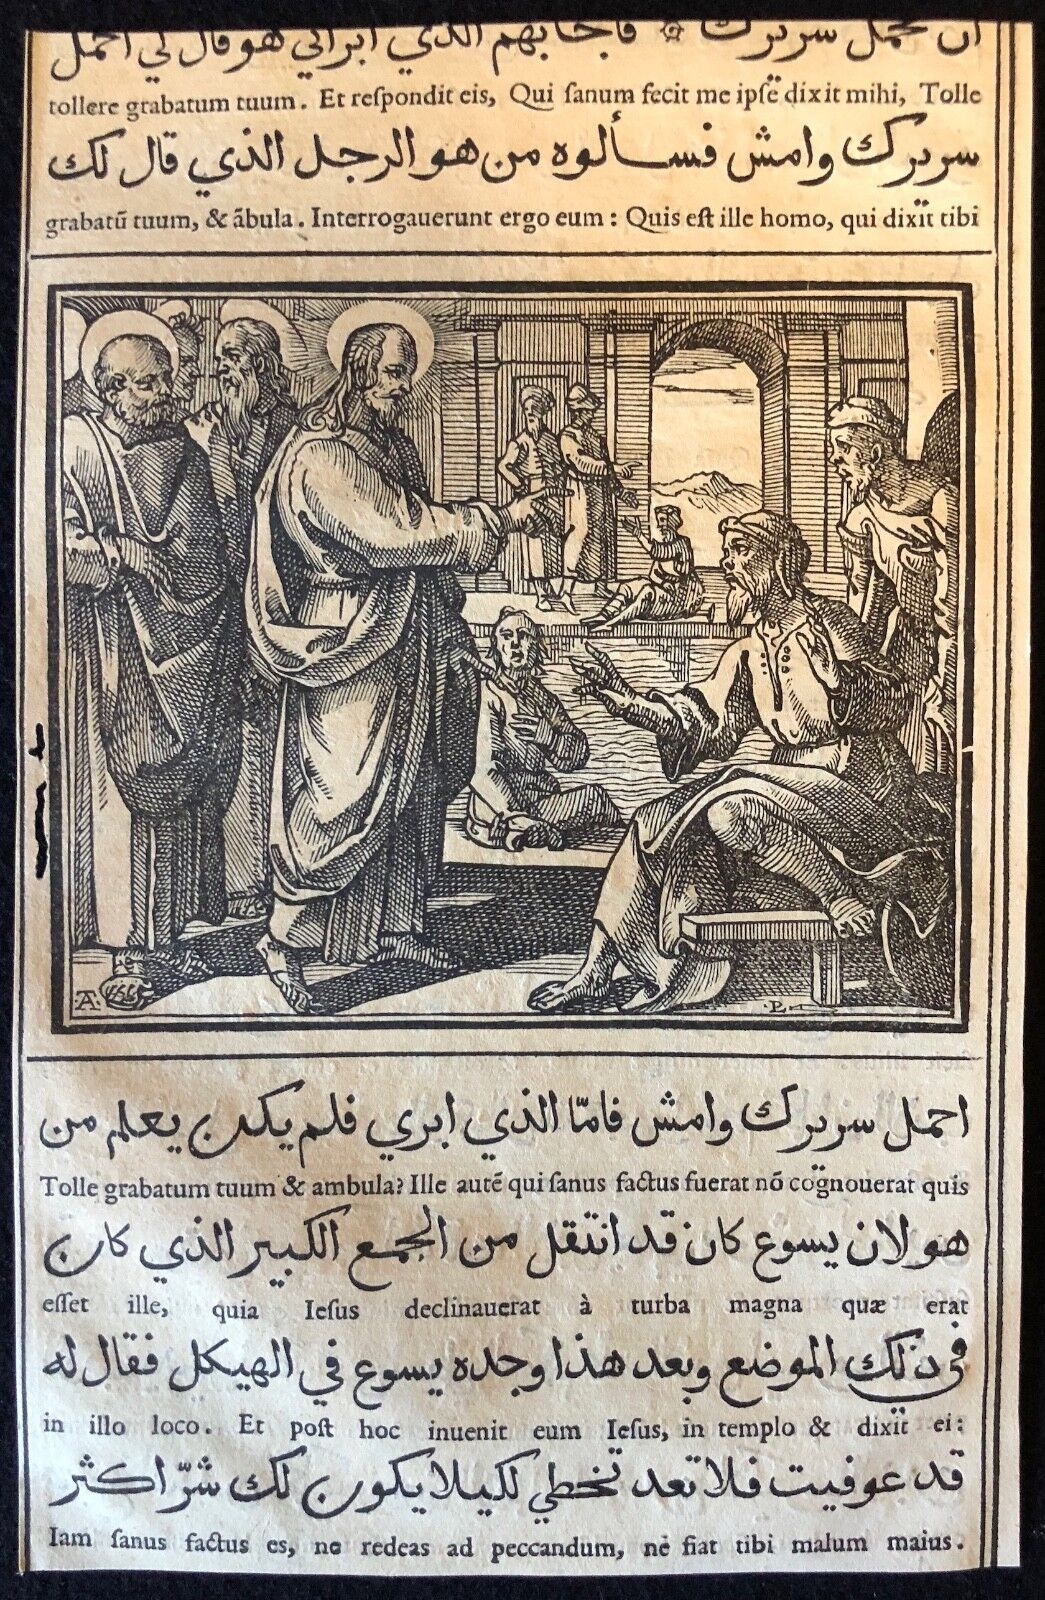 ان تحمل سريرك ۞ فاجابهم الذي ابراني هو قال لي احمل
tollere grabatum tuum. Et reſpondit eis, Qui ſanum fecit me ipſe dixit mihi, Tolle
سريرك وامش فسـألوه من هو الرجل الذي قال لك
grabatū tuum, & ābula. Interrogauerunt ergo eum : Quis eſt ille homo, qui dixit tibi
A
احمل سريرك وامش فامّا الذي ابري فلم يكن يعلم من
Tolle grabatum tuum & ambula? Ille autē qui ſanus factus fuerat nō cognouerat quis
هو لان يسوع كان قد انتقل من الجمع الكبير الذي كان
eſſet ille, quia Ieſus declinauerat à turba magna quæ erat
في ذلك الموضع وبعد هذا وجده يسوع في الهيكل فقال له
in illo loco. Et poſt hoc inuenit eum Ieſus, in templo & dixit ei:
قد عوفيت فلا تعد تخطي لكيلا يكون لك شرّ اكثر
Iam ſanus factus es, ne redeas ad peccandum, nè fiat tibi malum maius.